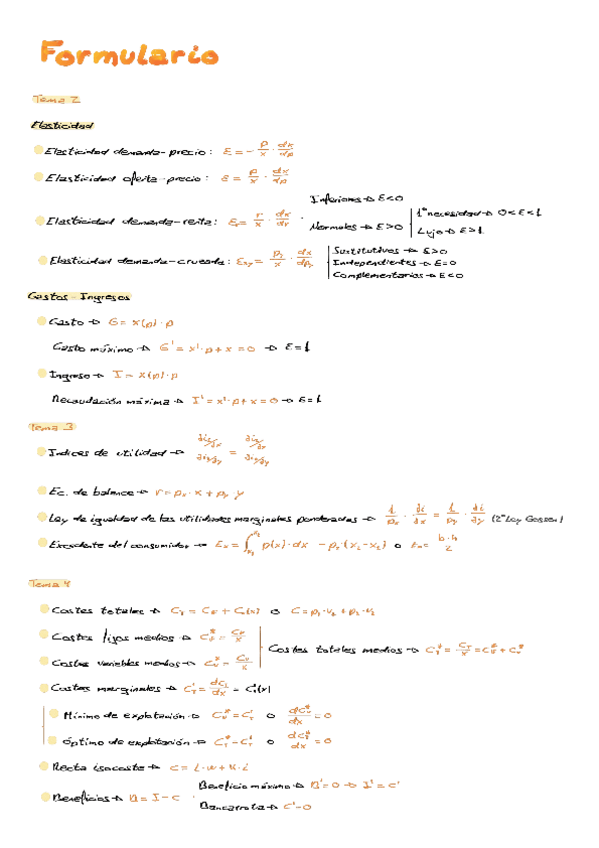 Formulario
Tema 2
Elasticidad
Elasticidad demanda-precio: E = - p/x · dx/dp
Elasticidad oferta-precio: E = p/x · dx/dp
Inferiores → E<0
Elasticidad demanda-renta: Er = r/x · dx/dr
Normales → E>0
1ª necesidad → 0<E<1
Lujo → E>1
Elasticidad demanda-cruzada: Exy = py/x · dx/dpy
Sustitutivos → E>0
Independientes → E=0
Complementarios → E<0
Gastos - Ingresos
Gasto → G = x(p) · p
Gasto máximo → G' = x' · p + x = 0 → E = 1
Ingreso → I = x(p) · p
Recaudación máxima → I' = x' · p + x = 0 → E = 1
Tema 3
Indices de utilidad →
Ec. de balance → r = px · x + py y
Ley de igualdad de las utilidades marginales ponderadas → 1/px · di/dx = 1/py · di/dy (2ª Ley Gossen)
Excedente del consumidor → p(x) · dx o b·h/2
Tema 4
Costes totales → CT = CF + Cv(x) o C = p1·v1 + p2·v2
Costes fijos medios → CF* = CF/x
Costes totales medios → CT* = CT/x = CF* + CV*
Costes variables medios → CV* = CV/x
Costes marginales → CT' = dCT/dx = CT'(x)
Mínimo de explotación → CV* = CT' o dCV*/dx = 0
Óptimo de explotación → CT* = CT' o dCT*/dx = 0
Recta isocoste →
Beneficio máximo → B' = 0 → I' = C'
Beneficios → B = I - C
Bancarrota →